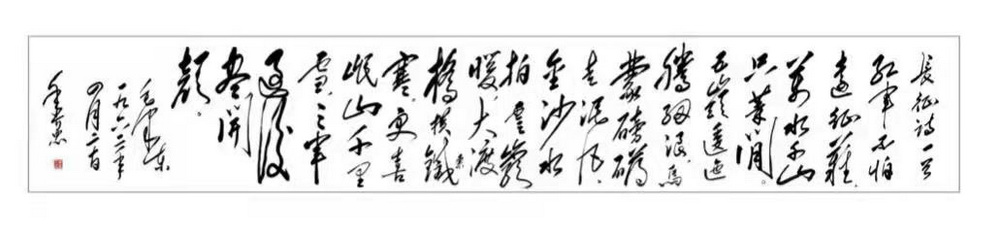 長征詩一首
紅軍不怕
遠征難，
萬水千山
只等閒。
五嶺逶迤
騰細浪，烏
蒙磅礴
走泥丸。
金沙水
拍雲
暖，大渡
橋橫鐵索
寒。更喜
岷山千里
雪，三軍
過後
盡開
顏。
毛澤東
一九六二年
四月二十日